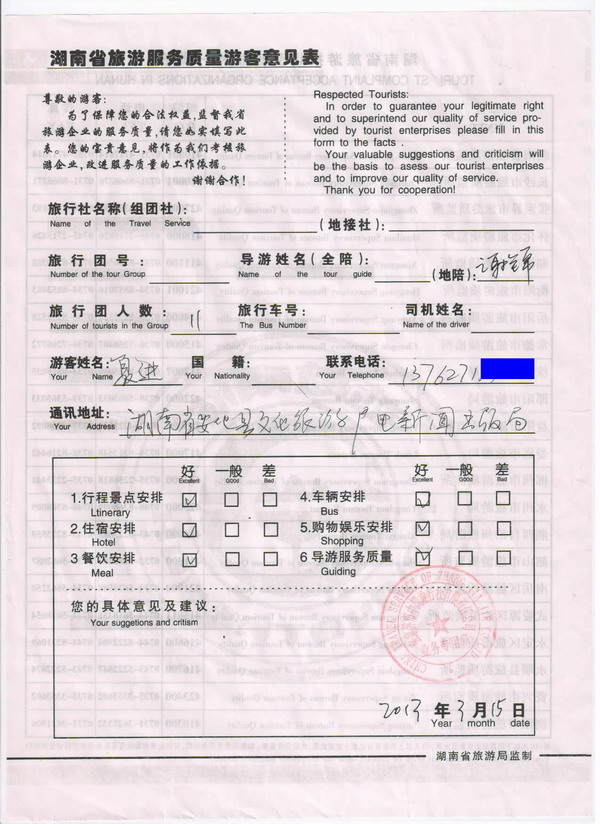 湖南省旅游服务质量游客意见表
尊敬的游客:
为了保障您的合法权益,监督我省
旅游企业的服务质量,请您如实填写此
表。您的宝贵意见,将作为我们考核旅
游企业,改进服务质量的工作依据。
谢谢合作!
Respected Tourists:
In order to guarantee your legitimate right
and to superintend our quality of service pro-
vided by tourist enterprises please fill in this
form to the facts .
Your valuable suggestions and criticism will
be the basis to asess our tourist enterprises
and to improve our quality of service.
Thank you for cooperation!
旅行社名称(组团社): (地接社):
Name of the Travel Service
旅行团号: 导游姓名(全陪) (地陪):
Number of the tour Group Name of the tour guide
旅行团人数: 11 旅行车号: 司机姓名:
Number of tourists in the Group The Bus Number Name of the driver
游客姓名: 夏进 国籍: 联系电话: 1376271
Your Name Your Nationality Your Telephone
通讯地址: 湖南省安化县文化旅游广电新闻出版局
Your Address
好 一般 差 好 一般 差
Excellent Good Bad Excellent Good Bad
1.行程景点安排 4.车辆安排
Ltinerary Bus
2.住宿安排 5.购物娱乐安排
Hotel Shopping
3 餐饮安排 6 导游服务质量
Meal Guiding
您的具体意见及建议:
Your suggetions and critism
2013 年 3 月 15 日
Year month date
湖南省旅游局监制